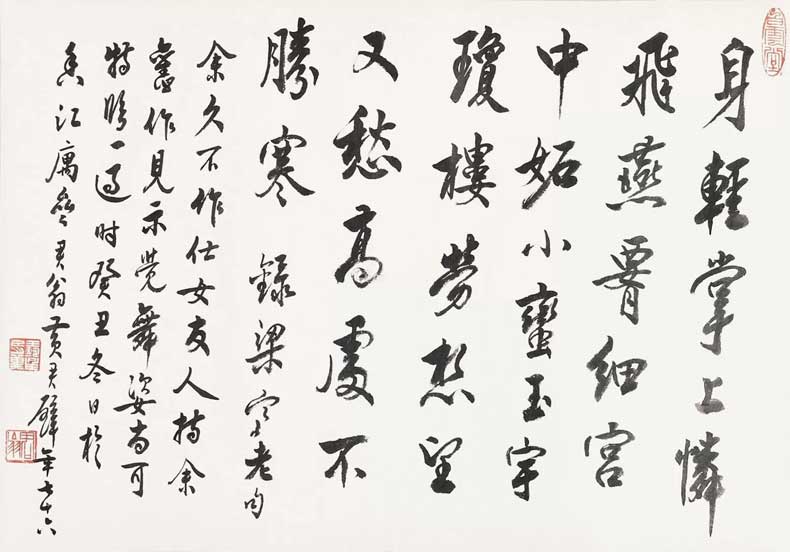 身輕掌上憐
飛燕要細宮
中妬小蠻玉宇
瓊樓勞想望
又愁高處不
勝寒 錄梁寒老句
余久不作仕女友人持余
舊作見示覺舞姿尚可
特臨一過时癸丑冬日於
香江寓 君翁黃君璧年七十六
白雲堂